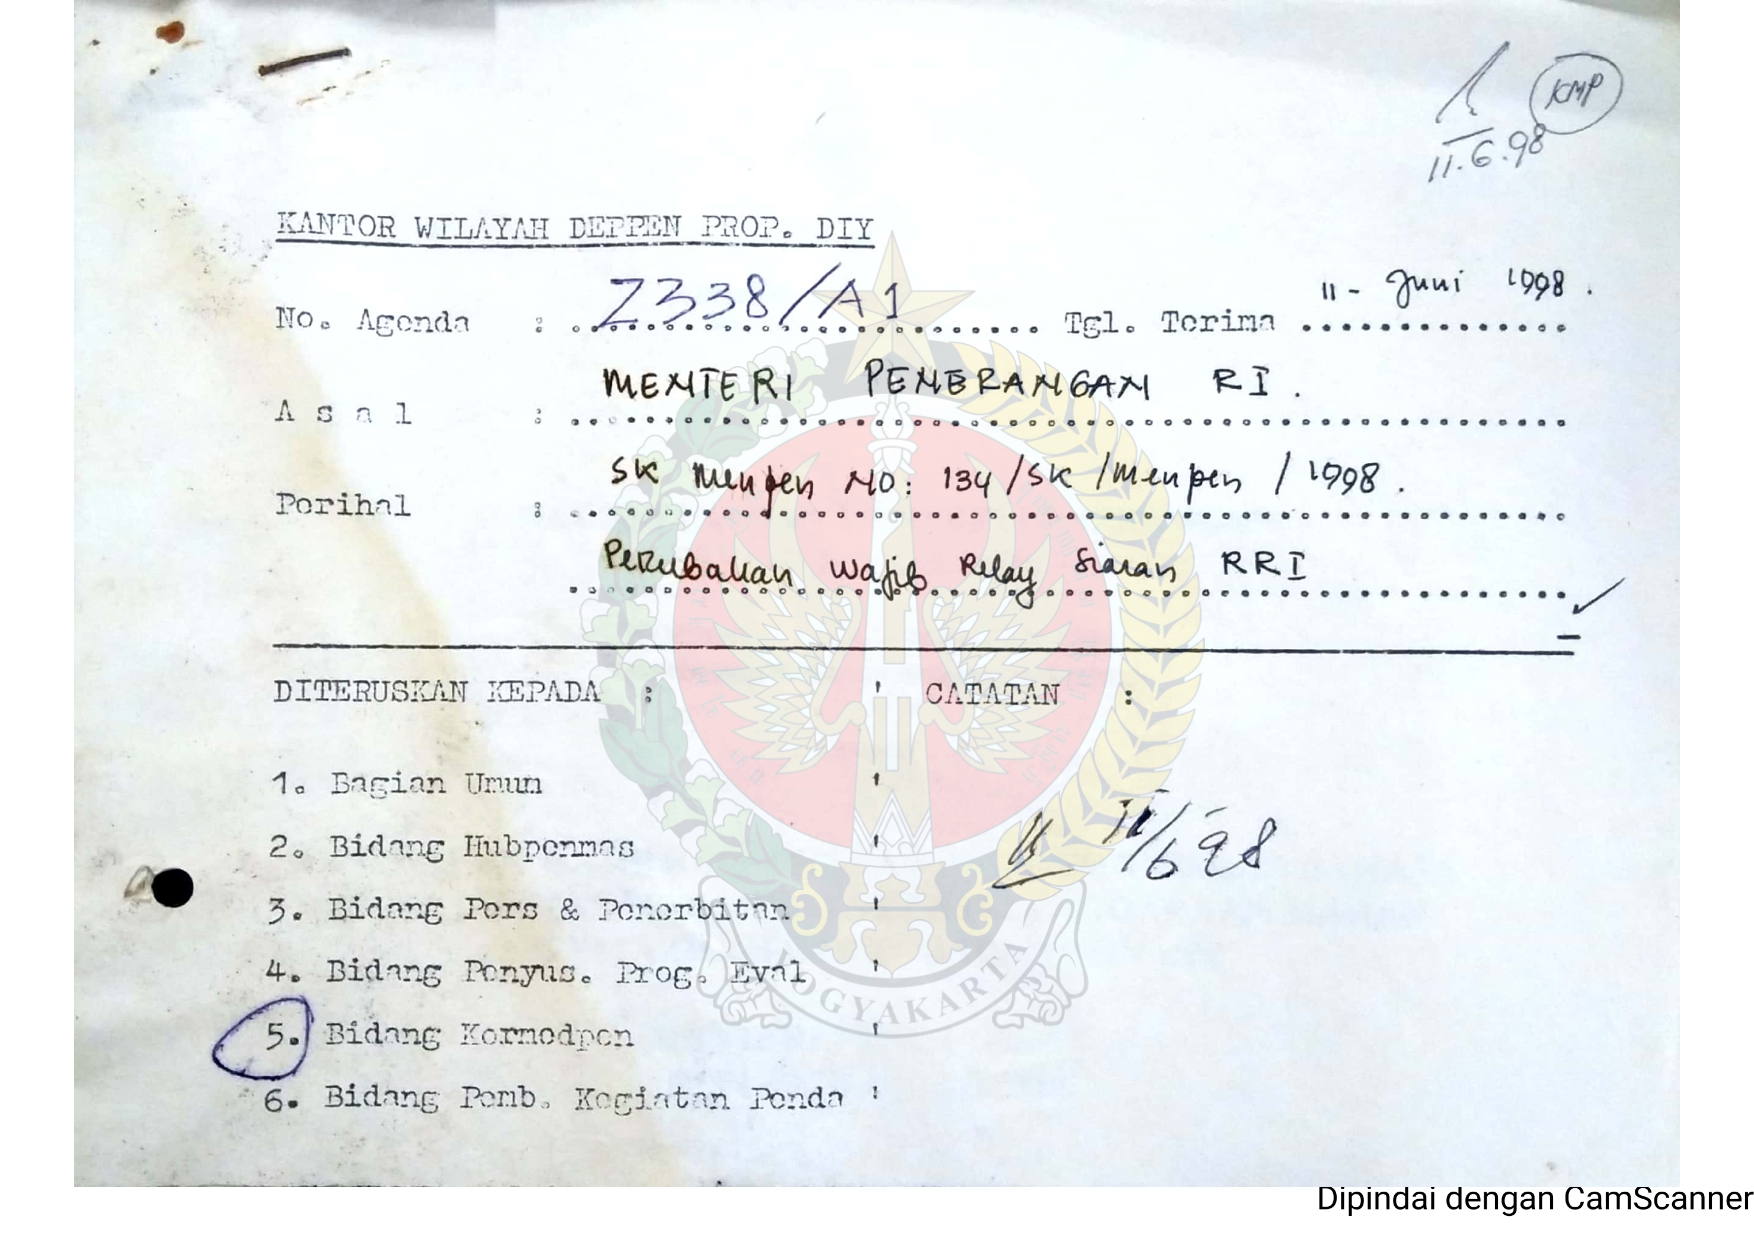 KMP
11.6.98
KANTOR WILAYAH DEPPEN PROP. DIY
No. Agenda : 2338/A1 Tgl. Terima 11 - Juni 1998.
A s a l : MENTERI PENERANGAN RI.
Perihal : SK Menpen NO: 134/SK/Menpen/1998.
Perubahan wajib Relay Siaran RRI
DITERUSKAN KEPADA : ' CATATAN :
1. Bagian Umum '
2. Bidang Hubpenmas '
3. Bidang Pers & Penerbitan '
4. Bidang Penyus. Prog. Eval '
5. Bidang Kormedpen '
6. Bidang Pemb. Kegiatan Penda '
11/6 98
YOGYAKARTA
Dipindai dengan CamScanner